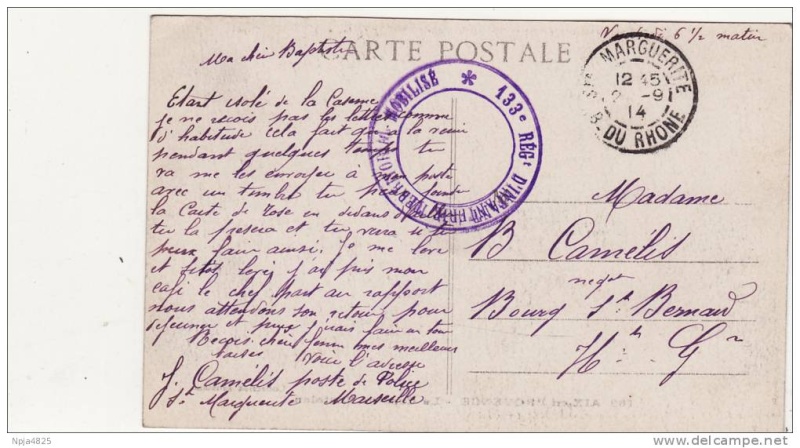 CARTE POSTALE
6 1/2 matin
Ma chère Baptistine
Etant isolé de la Caserne
je ne reçois pas les lettres comme
d'habitude cela fait que
pendant quelques temps tu
va me les envoyer à mon poste
avec un timbre tu peux joindre
la Carte de Rose en dedans
tu la pesera et tu verra si tu
peux faire ainsi. Je me leve
et sitôt levé j'ai pris mon
café le chef part au rapport
nous attendons son retour pour
déjeuner et puis j'irais faire un tour
Reçois chère femme mes meilleurs
baisers voici l'adresse
J. Camélis poste de Police
Ste Marguerite Marseille
133e RÉGt D'INFANTERIE TERRITORIAL MOBILISÉ
STE MARGUERITE
12 45
2 -9
14
B. DU RHONE
Madame
B Camélis
negt
Bourg St Bernard
Hte Gne
AIX-en-PROVENCE
Npja4825
©delcampe.net